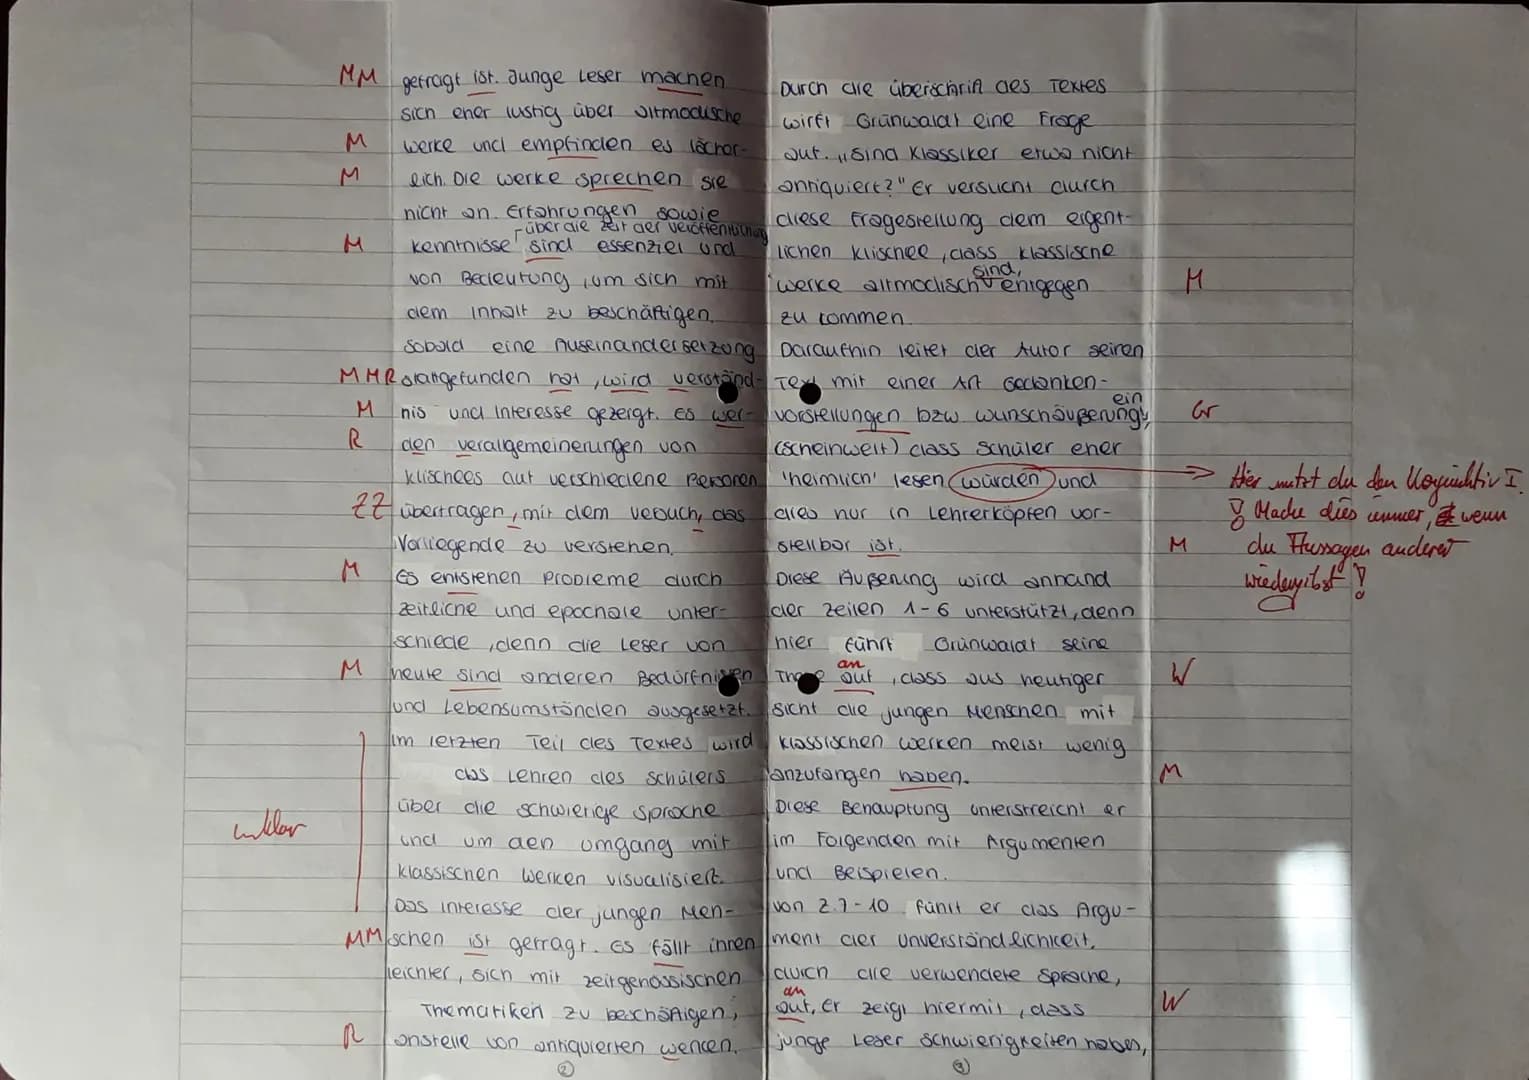 MM gefragt ist. Junge Leser machen
sich eher lustig über altmodische
M werke und empfinden es lächer-
M lich. Die werke sprechen sie
nicht an. Erfahrungen sowie
über die Zeit der Veröffentlichung
M kenntnisse sind essenziel und
von Bedeutung, um sich mit
dem Inhalt zu beschäftigen.
Sobald eine Auseinandersetzung
MMR stattgefunden hat, wird verständ-
M nis und Interesse gezeigt. Es wer-
R den verallgemeinerungen von
klischees auf verschiedene Personen
ZZ übertragen, mit dem versuch, das
Vorliegende zu verstehen.
M Es entstehen Probleme durch
zeitliche und epochale unter-
schiede, denn die Leser von
M heute sind anderen Bedürfnissen
und Lebensumständen ausgesetzt.
Im letzten Teil des Textes wird
das Lehren des Schülers
über die schwierige Sprache
unklar
und um den umgang mit
klassischen werken visualisiert.
Das interesse der jungen Men-
MM schen ist gefragt. Es fällt ihnen
leichter, sich mit zeitgenössischen
Thematiken zu beschäftigen,
R anstelle von antiquierten werken.
2
Durch die überschrift des Textes
wirft Grünwaldt eine Frage
auf. „Sind Klassiker etwa nicht
antiquiert?" Er versucht durch
diese Fragestellung dem eigent-
lichen klischee, dass klassische
sind,
werke altmodisch entgegen M
zu kommen.
Daraufhin leitet der Autor seinen
Text mit einer Art Gedanken-
ein
vorstellungen bzw. wunschäußerung, Gr
(scheinwelt) dass Schüler eher
'heimlich' lesen würden und
Hier nutzt du den Konjunktiv I.
dies nur in Lehrerköpfen vor-
Mache dies immer, wenn
stellbar ist. M
du Aussagen anderer
wiedergibst!
Diese Äußerung wird anhand
der Zeilen 1-6 unterstützt, denn
hier führt Grünwaldt seine
an
These auf, dass aus heutiger W
Sicht die jungen Menschen mit
klassischen werken meist wenig
anzufangen haben. M
Diese Behauptung unterstreicht er
im Folgenden mit Argumenten
und Beispielen.
von Z.7-10 führt er das Argu-
ment der Unverständlichkeit,
durch die verwendete Sprache,
an
auf, er zeigt hiermit, dass W
junge Leser Schwierigkeiten haben,
3